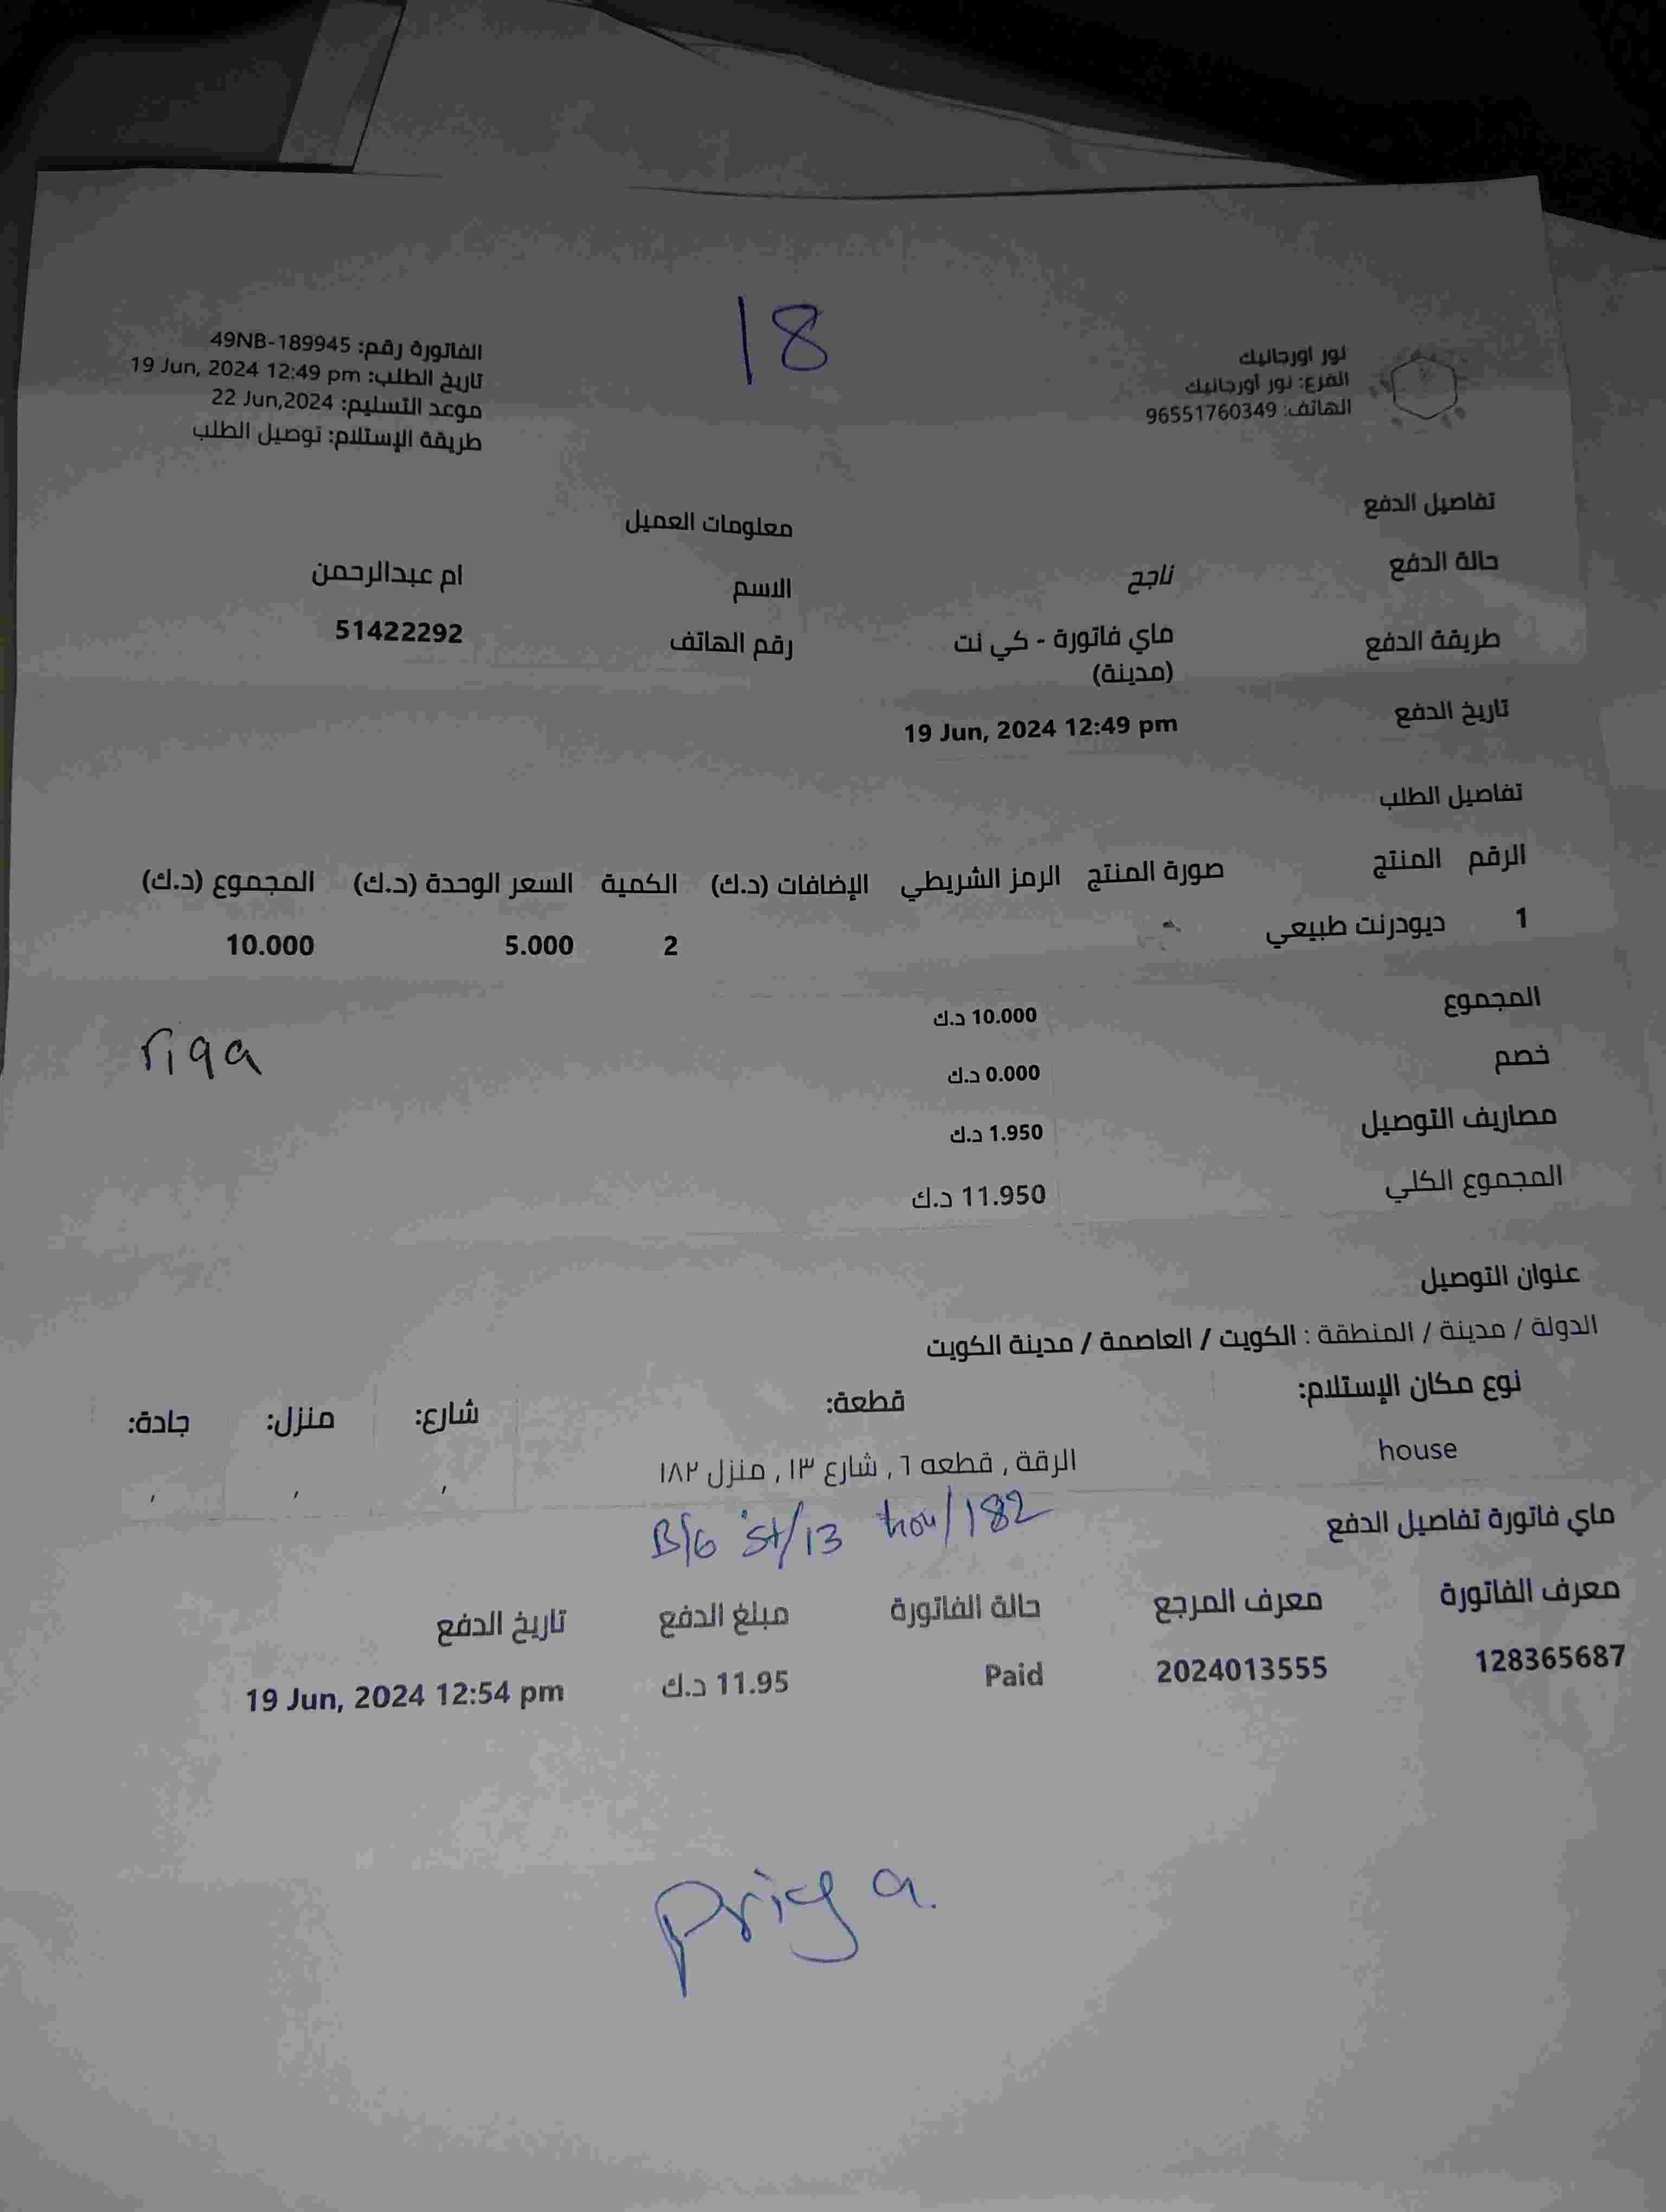 18
نور اورجانيك
الفرع: نور أورجانيك
الهاتف: 96551760349
الفاتورة رقم: 49NB-189945
تاريخ الطلب: 19 Jun, 2024 12:49 pm
موعد التسليم: 22 Jun,2024
طريقة الإستلام: توصيل الطلب
تفاصيل الدفع
حالة الدفع ناجح
طريقة الدفع ماي فاتورة - كي نت
(مدينة)
تاريخ الدفع 19 Jun, 2024 12:49 pm
معلومات العميل
الاسم ام عبدالرحمن
رقم الهاتف 51422292
تفاصيل الطلب
الرقم المنتج صورة المنتج الرمز الشريطي الإضافات (د.ك) الكمية السعر الوحدة (د.ك) المجموع (د.ك)
1 ديودرنت طبيعي 2 5.000 10.000
المجموع 10.000 د.ك
خصم 0.000 د.ك
riqa
مصاريف التوصيل 1.950 د.ك
المجموع الكلي 11.950 د.ك
عنوان التوصيل
الدولة / مدينة / المنطقة : الكويت / العاصمة / مدينة الكويت
نوع مكان الإستلام: قطعة: شارع: منزل: جادة:
house الرقة , قطعه ٦ , شارع ١٣ , منزل ١٨٢ , , ,
B/6 st/13 hou/182
ماي فاتورة تفاصيل الدفع
معرف الفاتورة معرف المرجع حالة الفاتورة مبلغ الدفع تاريخ الدفع
128365687 2024013555 Paid 11.95 د.ك 19 Jun, 2024 12:54 pm
priya.